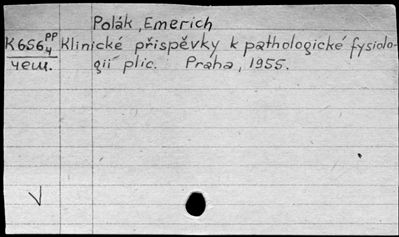 Polák, Emerich
K656 PP 4 Klinické příspěvky k pathologické fysiolo-
чеш. gii plic. Praha, 1955.
V